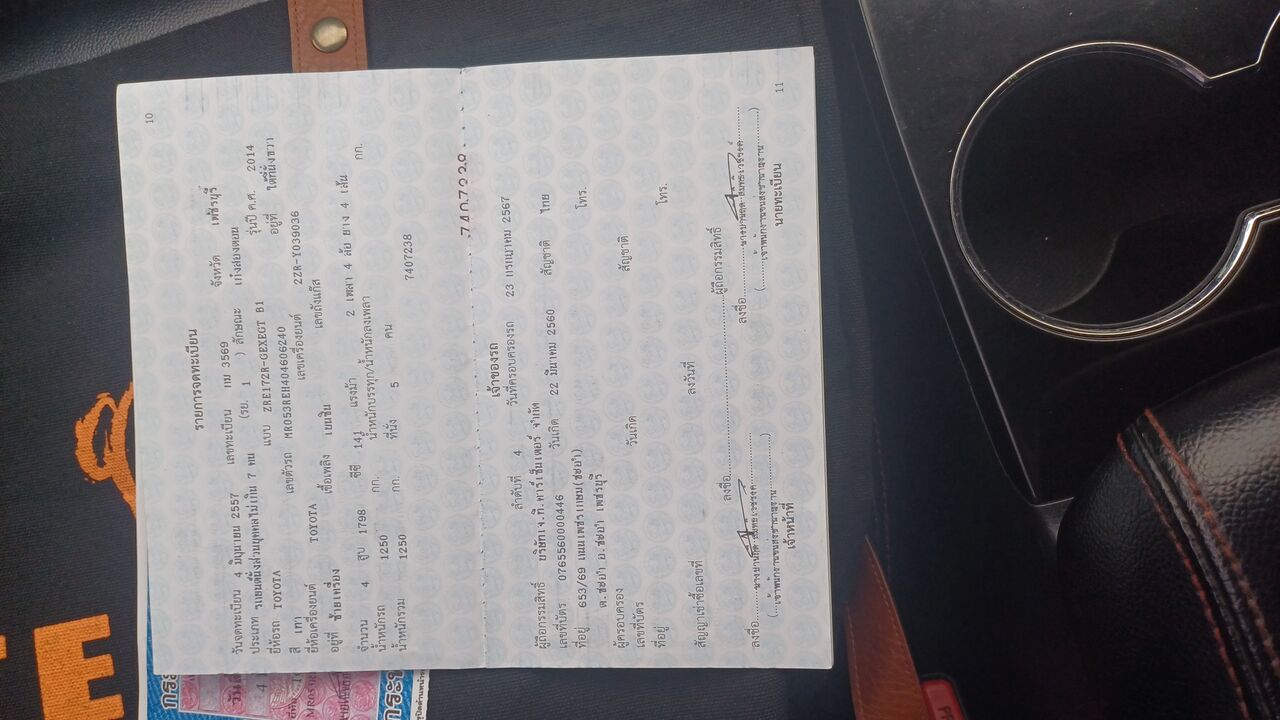 10
รายการจดทะเบียน
วันจดทะเบียน 4 มิถุนายน 2557 เลขทะเบียน กม 3569 จังหวัด เพชรบุรี
ประเภท รถยนต์นั่งส่วนบุคคลไม่เกิน 7 คน (รย. 1 ) ลักษณะ เก๋งสองตอน
ยี่ห้อรถ TOYOTA แบบ ZRE172R-GEXEGT B1 รุ่นปี ค.ศ. 2014
สี เทา เลขตัวรถ MR053REH404606240 อยู่ที่ ใต้ที่นั่งขวา
ยี่ห้อเครื่องยนต์ TOYOTA เลขเครื่องยนต์ 2ZR-Y039036
อยู่ที่ ซ้ายเครื่อง เชื้อเพลิง เบนซิน เลขถังแก๊ส
จำนวน 4 สูบ 1798 ซีซี 141 แรงม้า 2 เพลา 4 ล้อ ยาง 4 เส้น
น้ำหนักรถ 1250 กก. น้ำหนักบรรทุก/น้ำหนักลงเพลา กก.
น้ำหนักรวม 1250 กก. ที่นั่ง 5 คน
7407238
เจ้าของรถ
ลำดับที่ 4 วันที่ครอบครองรถ 23 กรกฎาคม 2567
ผู้ถือกรรมสิทธิ์
เลขที่บัตร 0765560000446 วันเกิด 22 มีนาคม 2560 สัญชาติ ไทย
ที่อยู่ 653/69 ถนนเพชรเกษม(ชะอำ) โทร.
ต.ชะอำ อ.ชะอำ เพชรบุรี
ผู้ครอบครอง
เลขที่บัตร วันเกิด สัญชาติ
ที่อยู่ โทร.
สัญญาเช่าซื้อเลขที่ ลงวันที่
ลงชื่อ ผู้ถือกรรมสิทธิ์
ลงชื่อ ลงชื่อ
เจ้าหน้าที่ นายทะเบียน
11